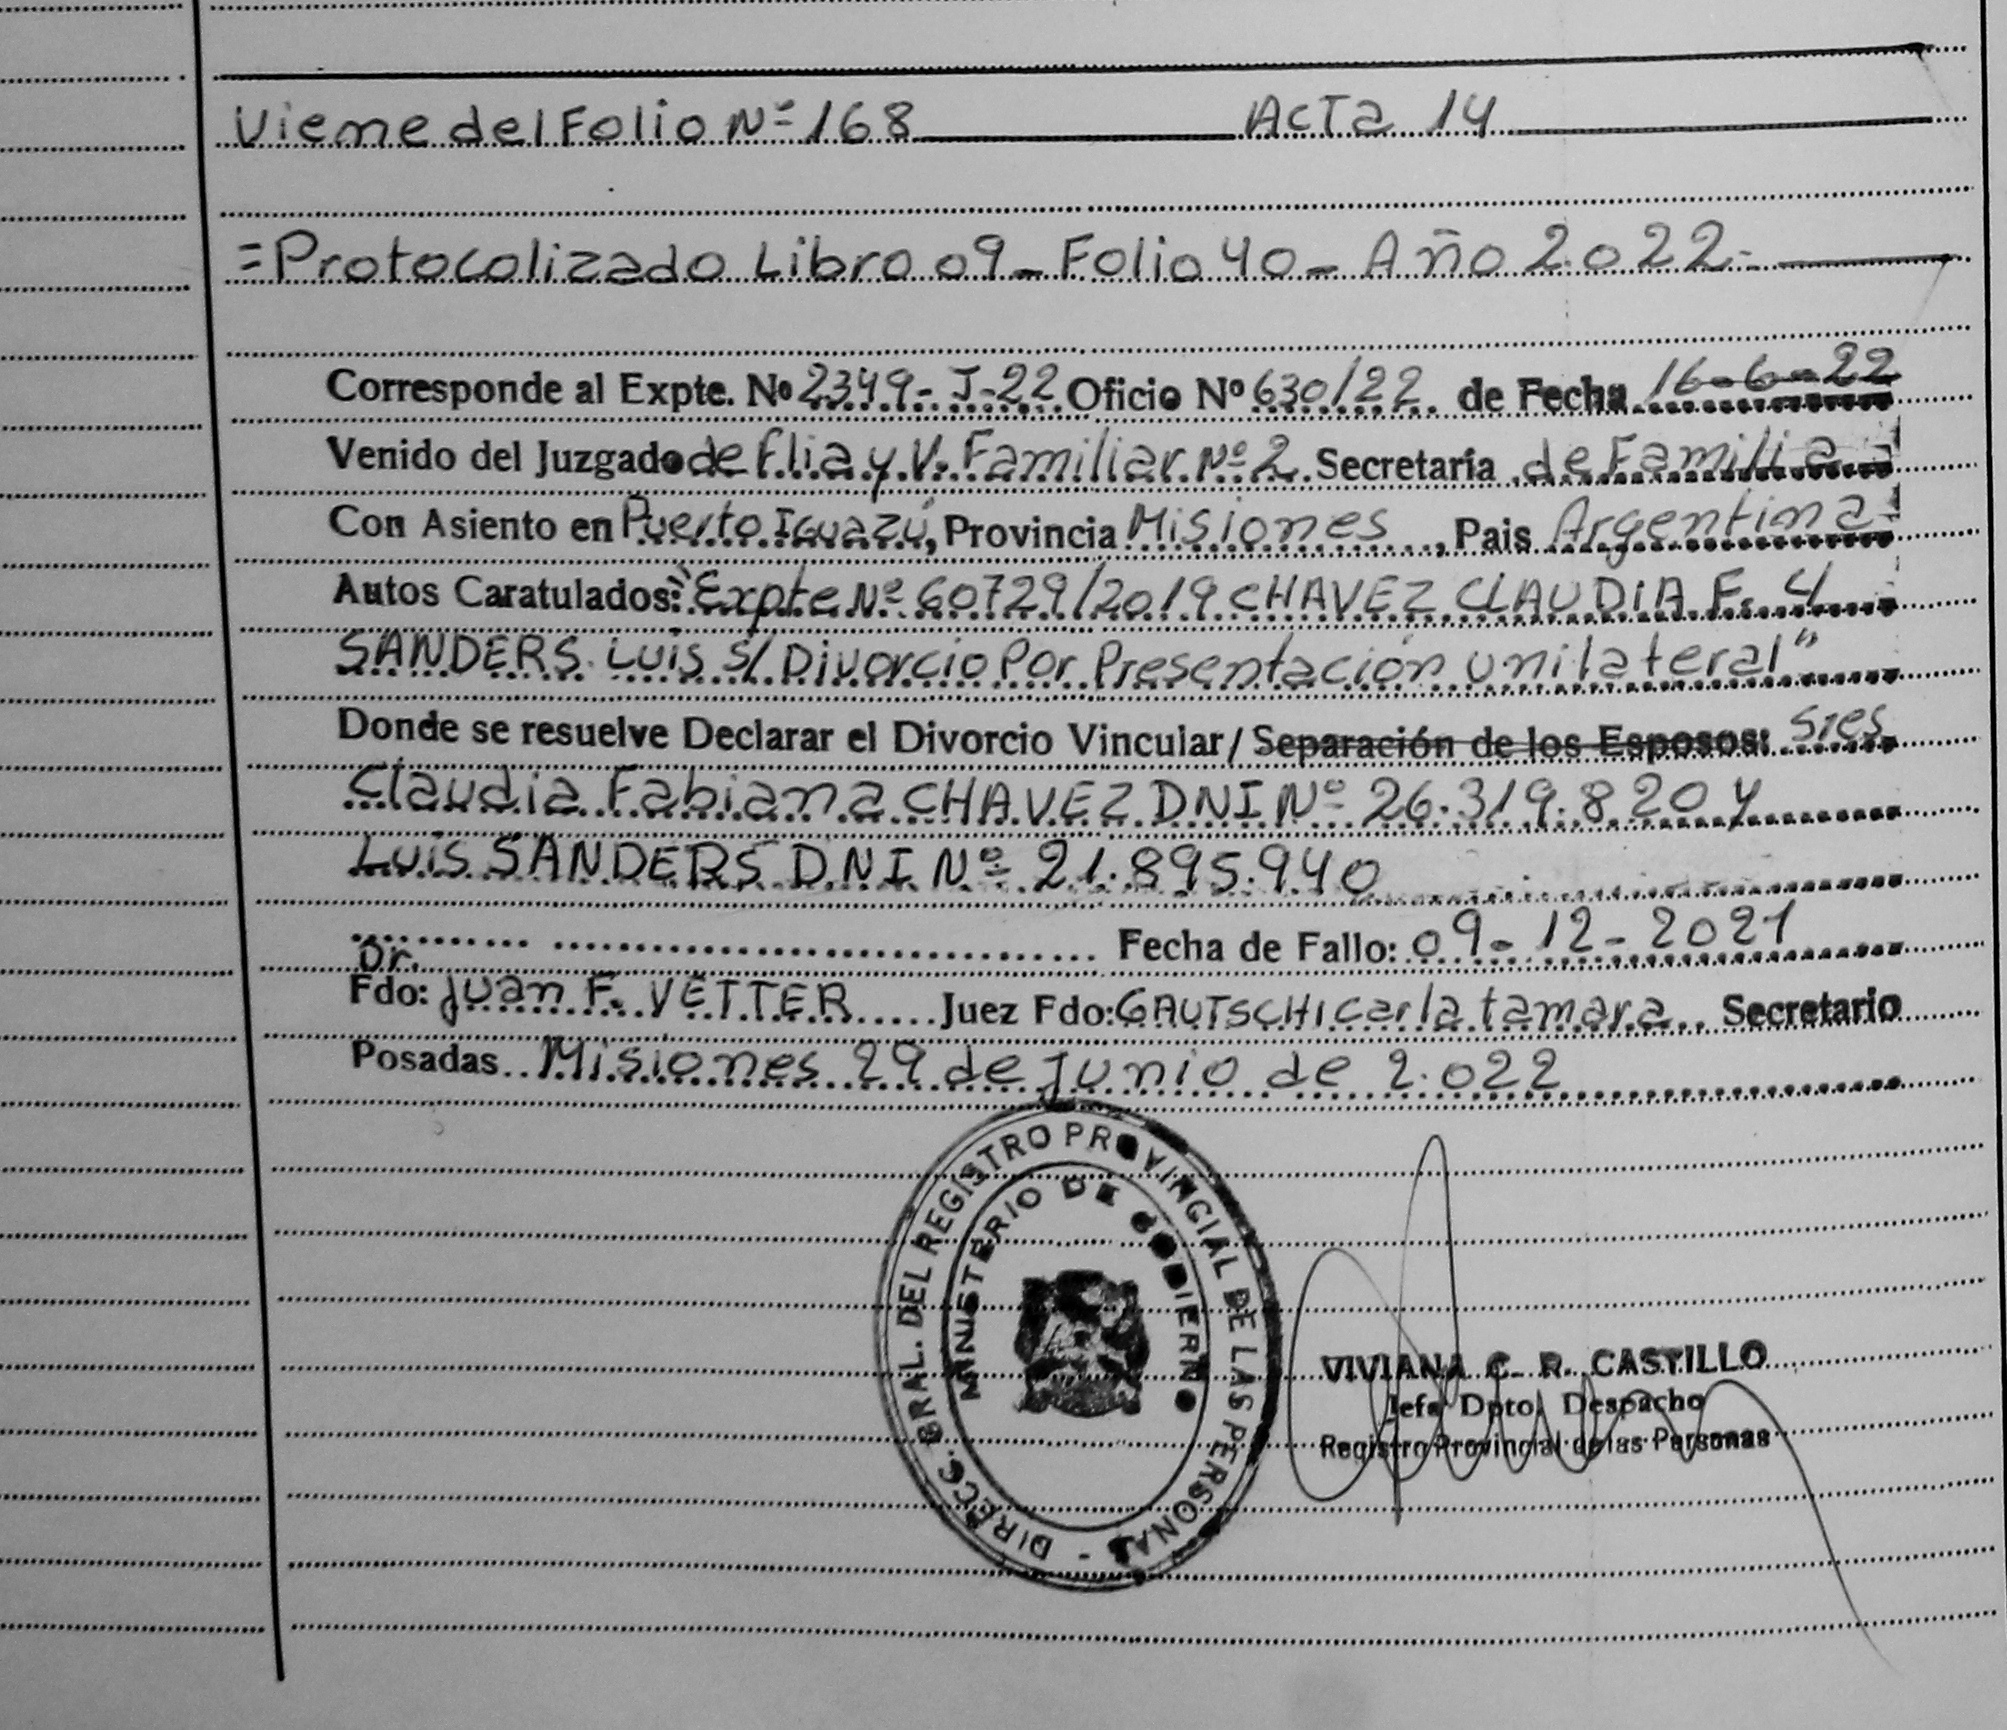 Viene del Folio Nº 168 Acta 14
=Protocolizado Libro 09 - Folio 40 - Año 2.022-
Corresponde al Expte. Nº 2349-J-22 Oficio Nº 630/22 de Fecha 16-6-22
Venido del Juzgado de Flia y V. Familiar Nº 2 Secretaría de Familia
Con Asiento en Puerto Iguazú, Provincia Misiones, Pais Argentina
Autos Caratulados: "Expte Nº 60729/2019 CHAVEZ CLAUDIA F. C/
SANDERS Luis S/ Divorcio Por Presentación unilateral"
Donde se resuelve Declarar el Divorcio Vincular/ Separación de los Esposos: Sres
Claudia Fabiana CHAVEZ DNI Nº 26.319.820 y
Luis SANDERS DNI Nº 21.895.940
Fecha de Fallo: 09-12-2021
Dr.
Fdo: Juan F. VETTER Juez Fdo: GAUTSCHI carla tamara Secretario
Posadas Misiones 29 de Junio de 2.022
DIRECC. GRAL. DEL REGISTRO PROVINCIAL DE LAS PERSONAS -
MINISTERIO DE GOBIERNO
VIVIANA C. R. CASTILLO
Jefa Dpto. Despacho
Registro Provincial de las Personas